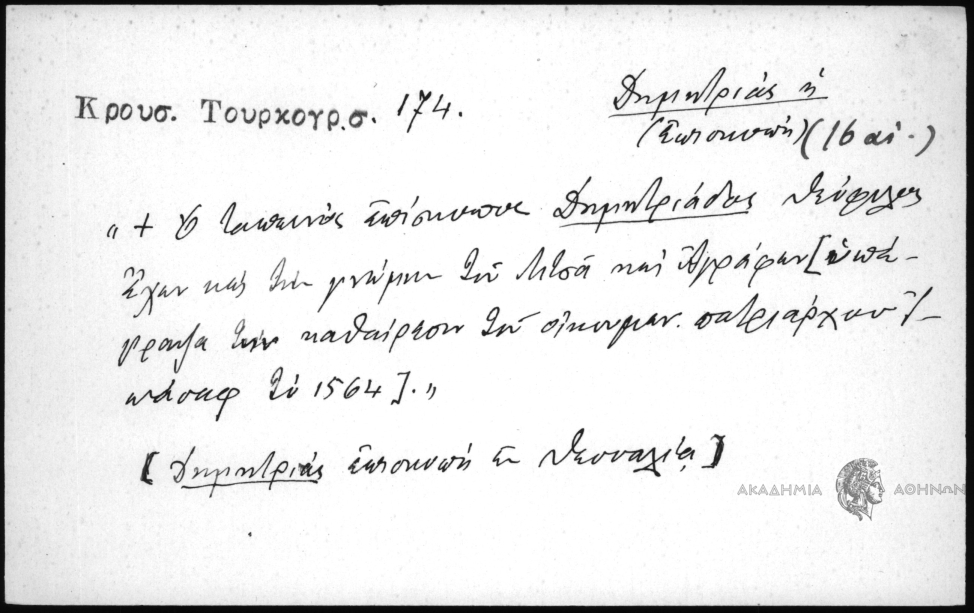 Κρουσ. Τουρκογρ.σ. 174.
Δημητριάς ἡ
(Ἐπισκοπή) (16 αἰ.)
„ + Ὁ ταπεινὸς ἐπίσκοπος Δημητριάδος Θεόφιλος
ἔχων καὶ τὴν γνώμην τοῦ Λιτζᾶ καὶ Ἀγράφων [ὑπέ-
γραψα τὴν καθαίρεσιν τοῦ οἰκουμεν. πατριάρχου Ἰ-
ωάσαφ τῷ 1564]. „
[Δημητριάς ἐπισκοπὴ ἐν Θεσσαλίᾳ]
ΑΚΑΔΗΜΙΑ ΑΘΗΝΩΝ